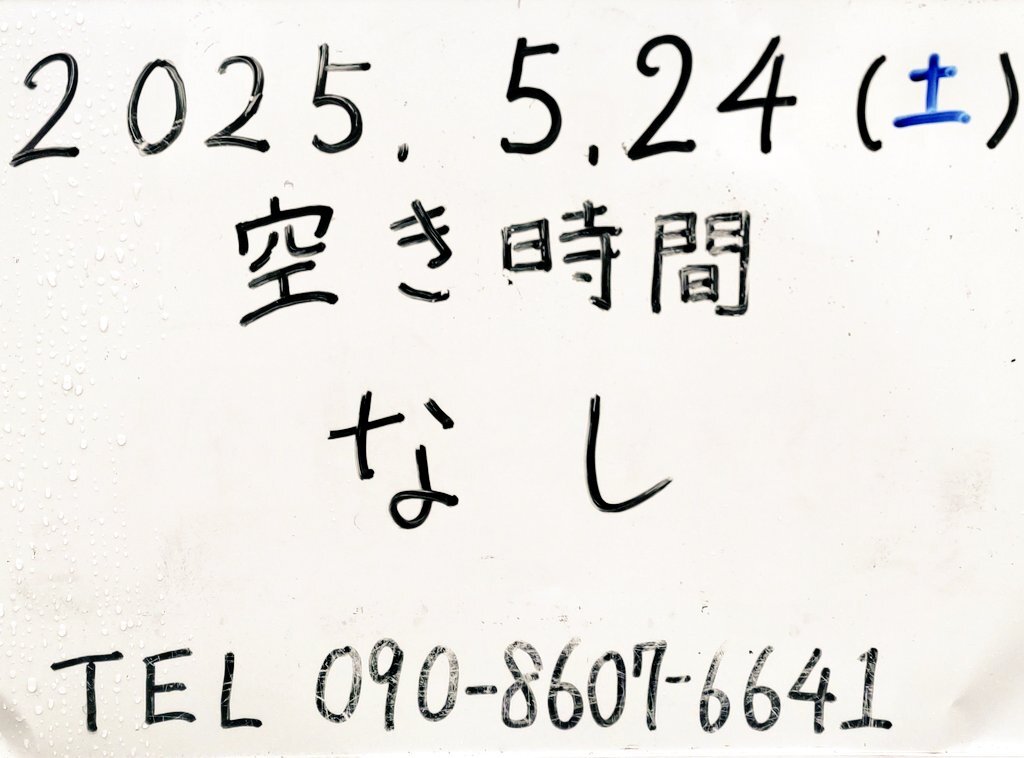 2025.5.24(土)
空き時間
なし
TEL 090-8607-6641